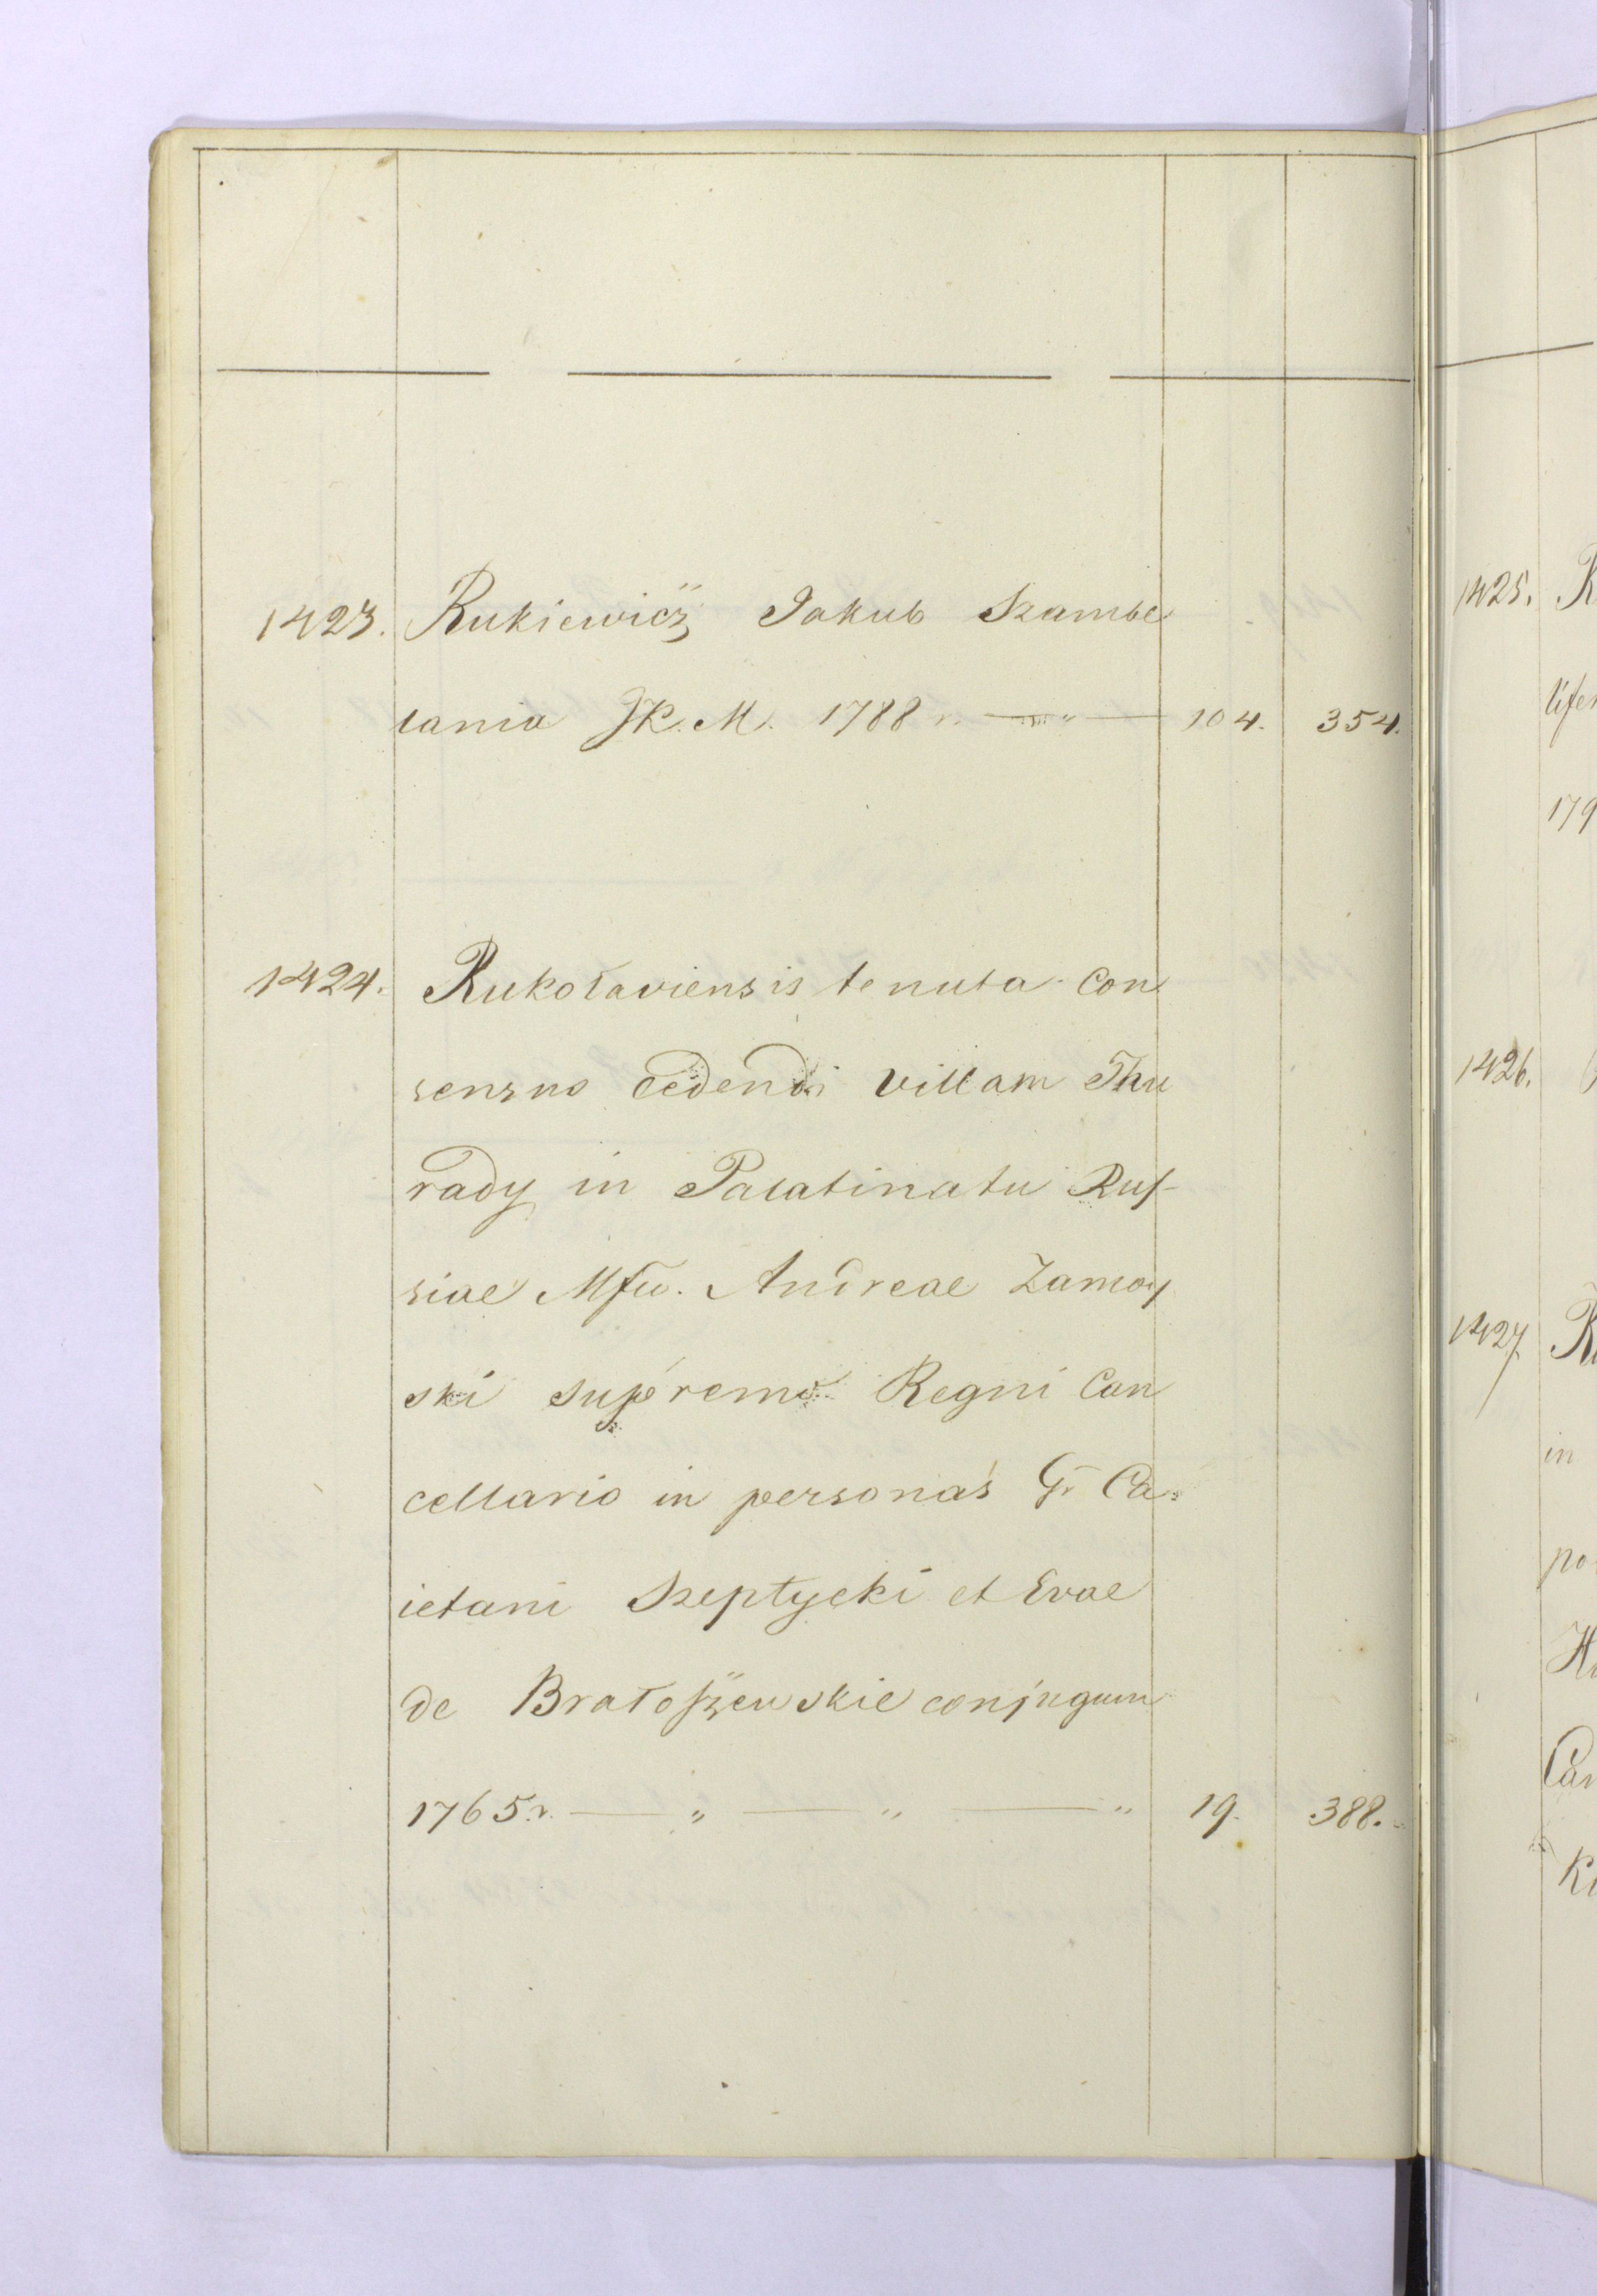 1423. Rukiewicz Jakub Szambe
lania JK. M. 1788 r. — " — 104. 354.
1424. Rukołaviensis tenuta Con
sensus cedendi villam Thu
rady in Palatinatu Rus-
siae Mfco. Andreae Zamoy
ski supremo Regni Can
cellario in personas G. Ca-
ietani Szeptycki et Evae
de Bratoszewskie conjugum
1765 r. — " — " — " 19. 388.
1425. R
179
1426.
1427 R
in
po
Ca